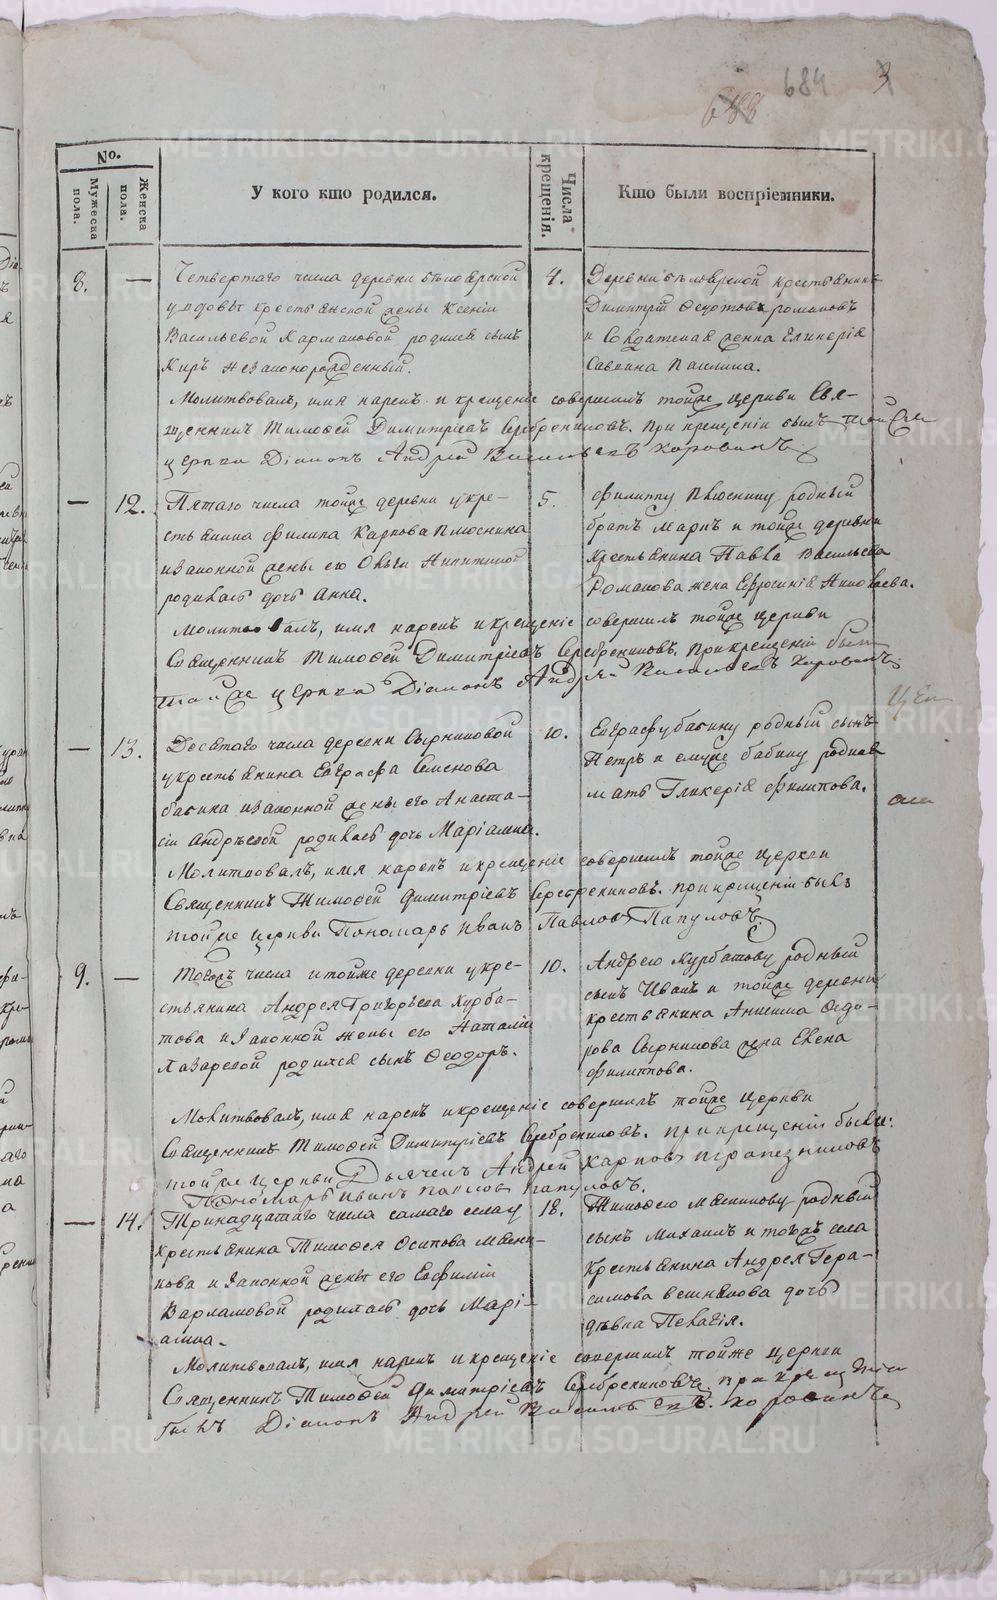 684 3
688
No.
Мужеска пола.
Женска пола.
У кого кто родился.
Числа крещенія.
Кто были воспріемники.
8. —
Четвертаго числа деревни Белоярской
у вдовы крестьянской жены Ксеніи
Васильевой Кармановой родился сынъ
Киръ незаконорожденный.
4.
Деревни Белоярской крестьянинъ
Димитрій Романовъ
и Солдатская женка Гликерія
Савина
Молитвовалъ, имя нарекъ и крещеніе совершилъ тойже церкви Свя-
щенникъ Тимоѳей Димитріевъ Серебрениковъ. При крещеніи былъ той же
церкви Діаконъ Андрей Васильевъ Коровинъ
— 12.
Пятаго числа тойже деревни у кре-
стьянина Филипа Карпова Плюснина
и законной жены его Ольги Никитиной
родилась дочь Анна.
5.
Филиппу Плюснину родный
братъ Маркъ и тойже деревни
крестьянина Павла Васильева
Романова жена Евфросинія Николаева.
Молитвовалъ, имя нарекъ и крещеніе совершилъ тойже церкви
Священникъ Тимоѳей Димитріевъ Серебрениковъ. При крещеніи былъ
тойже церкви Діаконъ Андрей Васильевъ Коровинъ
— 13.
Десятаго числа деревни Сырниковой
у крестьянина Евграфа Семенова
Бабина и законной жены его Анаста-
сіи Андреевой родилась дочь Маріамна.
10.
Евграфу Бабину родный сынъ
Петръ и емуже Бабину родная
мать Гликерія Филипова.
Молитвовалъ, имя нарекъ и крещеніе совершилъ тойже церкви
Священникъ Тимоѳей Димитріевъ Серебрениковъ. При крещеніи былъ
тойже церкви Пономарь Иванъ Павловъ Папуловъ.
9. —
Тогожъ числа и тойже деревни у кре-
стьянина Андрея Григорьева Курба-
това и законной жены его Наталіи
Лазаревой родился сынъ Ѳеодоръ.
10.
Андрею Курбатову родный
сынъ Иванъ и тойже деревни
крестьянина Анисима Ѳедо-
рова Сырникова жена Елена
Филиппова.
Молитвовалъ, имя нарекъ и крещеніе совершилъ тойже церкви
Священникъ Тимоѳей Димитріевъ Серебрениковъ. При крещеніи были:
тойже церкви Дьячекъ Андрей Карповъ Трапезниковъ
Пономарь Иванъ Павловъ Папуловъ.
— 14.
Тринадцатаго числа самаго села у
крестьянина Тимоѳея Осипова
и законной жены его Евфиміи
Варламовой родилась дочь Марі-
амна.
18.
Тимоѳею родный
сынъ Михаилъ и тогожъ села
крестьянина Андрея Гера-
симова Вешнякова дочь
дѣвка Пелагія.
Молитвовалъ, имя нарекъ и крещеніе совершилъ тойже церкви
Священникъ Тимоѳей Димитріевъ Серебрениковъ при крещеніи
былъ Діаконъ Андрей Васильевъ Коровинъ
METRIKI.GASO-URAL.RU